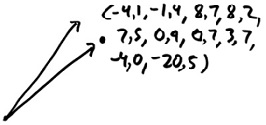 (-4,1,-1,4, 8,7,8,2,
7,5, 0,9, 0,7,3,7,
-4,0,-20,5)